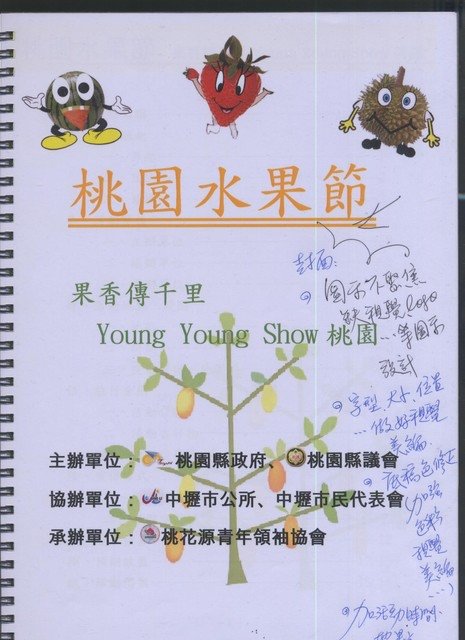 桃園水果節
封面:
果香傳千里
圖示不聚焦
缺視覺logo
...等圖示
設計
Young Young Show 桃園
字型、大小、位置
...做好視覺
美編
主辦單位：桃園縣政府、桃園縣議會
底稿色修正
加強
協辦單位：中壢市公所、中壢市民代表會
色彩
視覺
承辦單位：桃花源青年領袖協會
美編
...)
加活動時間、